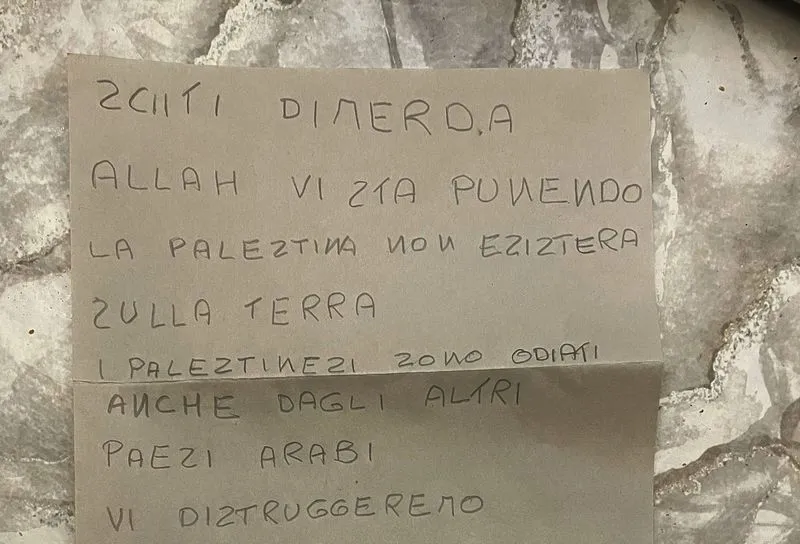 ZCIITI DIMERD.A
ALLAH VI ZTA PUNENDO
LA PALEZTINA NON EZIZTERA
ZULLA TERRA
I PALEZTINEZI ZONO ODIATI
ANCHE DAGLI ALTRI
PAEZI ARABI
VI DIZTRUGGEREMO